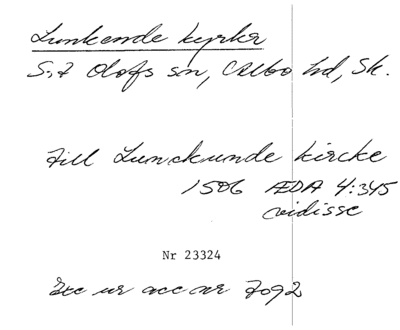 Lunkende kyrka
S:t Olofs sn, Albo hd, Sk.
till Lunckunde kircke
1506 ÆDA 4:345
vidisse
Nr 23324
Exc ur acc nr 7092